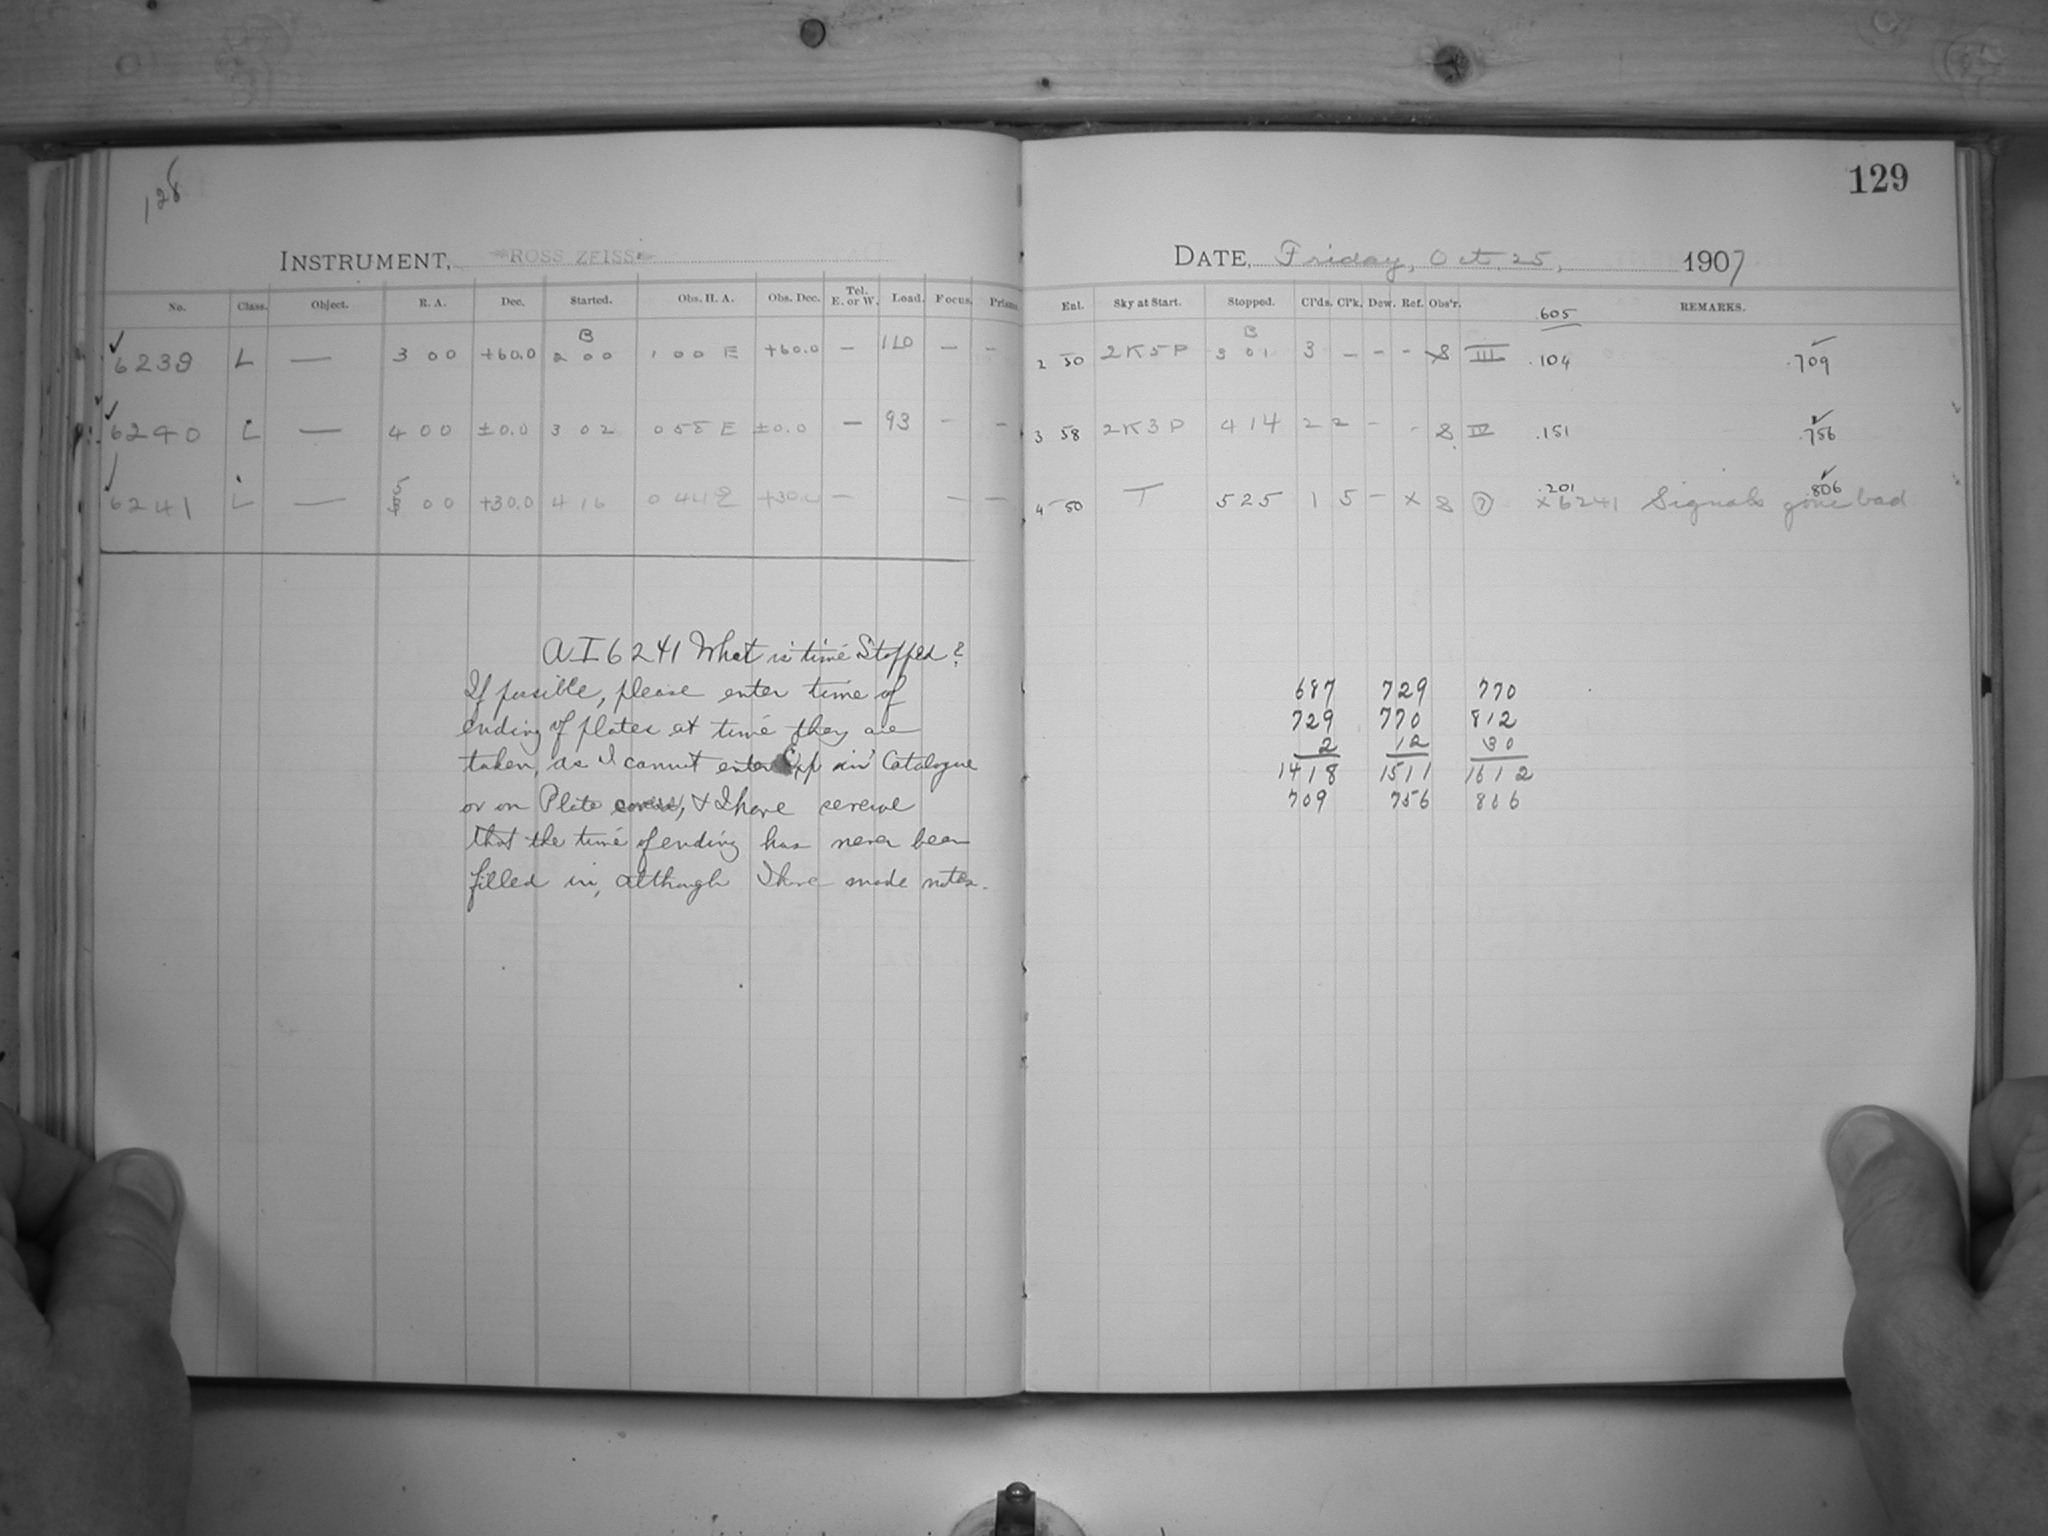 128
INSTRUMENT, ROSS ZEISS
No. Class. Object. R. A. Dec. Started. Obs. H. A. Obs. Dec. Tel. E. or W. Load. Focus. Prism.
B
6239 L — 3 00 +60.0 2 00 1 00 E +60.0 — 110 — —
6240 L — 4 00 ±0.0 3 02 0 58 E ±0.0 — 93 - -
6241 L — 5 00 +30.0 4 16 0 44 E +30.0 — — —
A I 6241 What is time Stopped?
If possible, please enter time of
ending of plates at time they are
taken, as I cannot enter Exp in Catalogue
or on Plate cover, & I have several
that the time of ending has never been
filled in, although I have made notes.
129
DATE, Friday, Oct. 25, 1907
Enl. Sky at Start. Stopped. Cl'ds. Cl'k. Dew. Ref. Obs'r. REMARKS.
.605
B
2 50 2K5P 3 01 3 — - - S III .104 .709
3 58 2K3P 4 14 2 2 - - S. IV .151 .756
.201 .806
4 50 T 5 25 1 5 — x S x 6241 Signals gone bad
687 729 770
729 770 812
2 12 30
1418 1511 1612
709 756 806